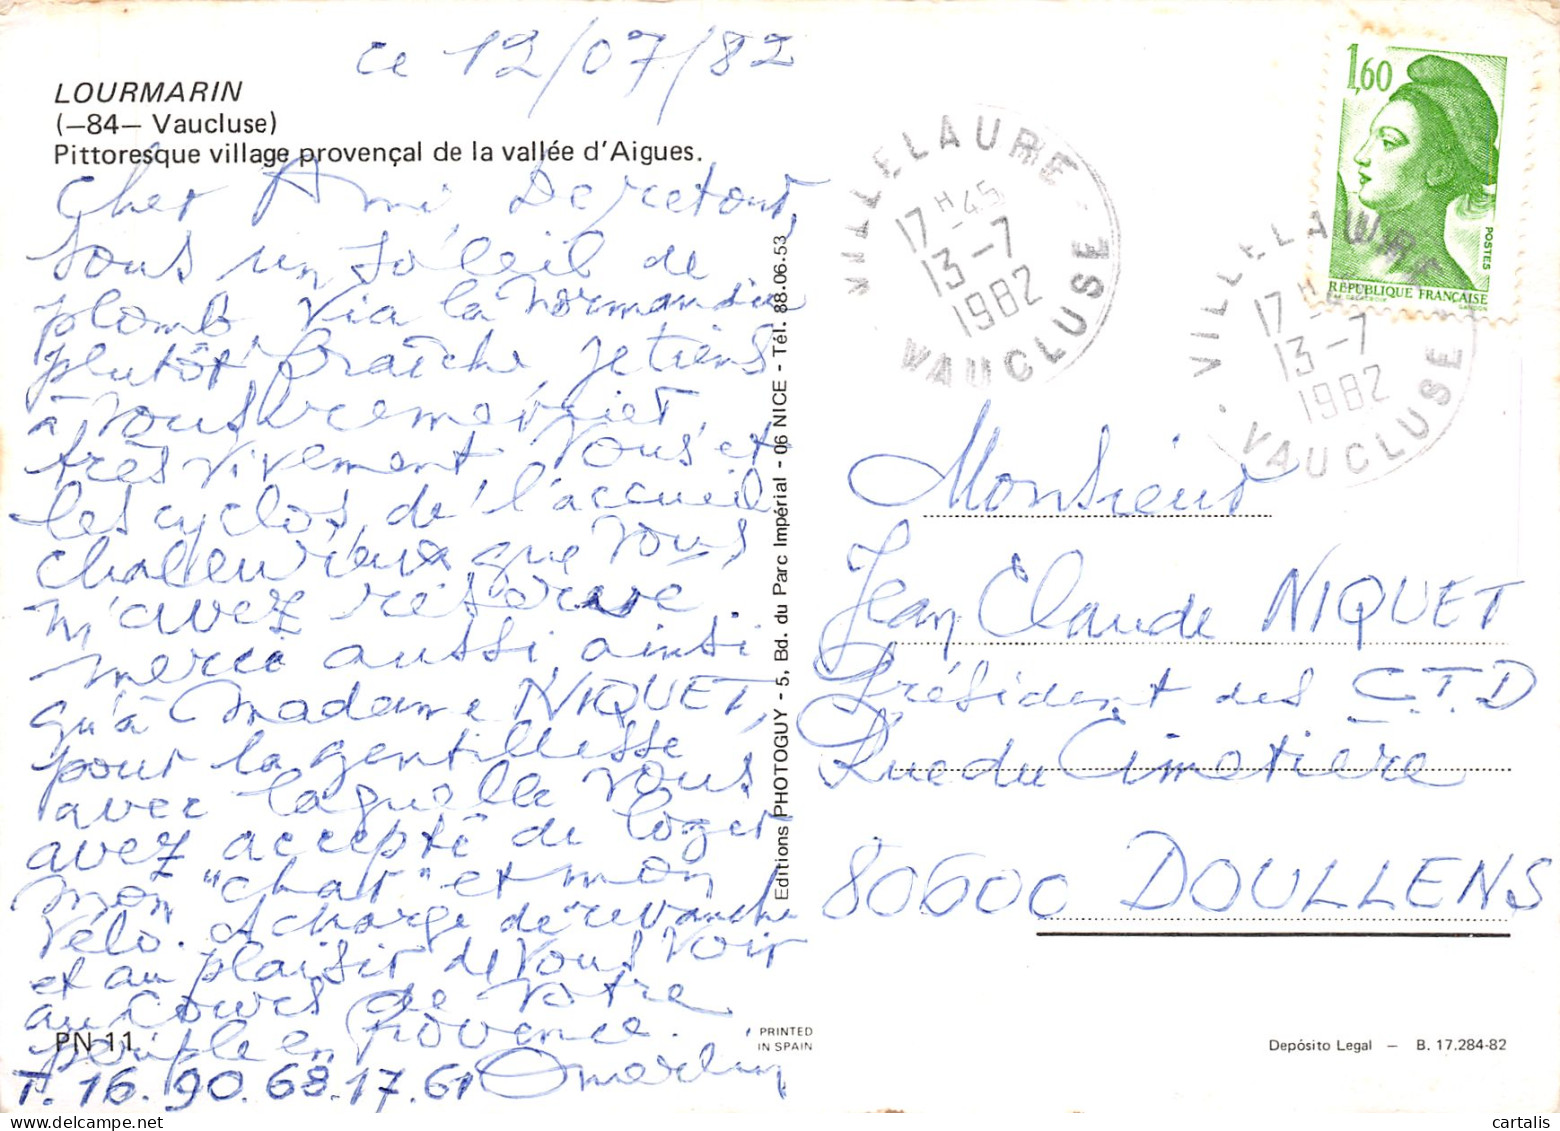 ce 12/07/82
LOURMARIN
(—84— Vaucluse)
Pittoresque village provençal de la vallée d'Aigues.
Cher Ami, De retour,
sous un soleil de
plomb, via la Normandie
plutôt fraîche, je tiens
à vous remercier
très vivement Vous et
les cyclos, de l'accueil
chaleureux que vous
m'avez réservé
merci aussi, ainsi
qu'à Madame NIQUET,
pour la gentillesse
avec laquelle vous
avez accepté de loger
mon "char" et mon
vélo. A charge de revanche
et au plaisir de vous voir
au cours de votre
périple en Provence.
T. 16.90.68.17.61
PN 11
Editions PHOTOGUY - 5, Bd. du Parc Impérial - 06 NICE - Tél. 88.06.53
PRINTED
IN SPAIN
VILLELAURE
17H45
13-7
1982
VAUCLUSE
1,60
POSTES
RÉPUBLIQUE FRANÇAISE
VILLELAURE
17H
13-7
1982
VAUCLUSE
Monsieur
Jean Claude NIQUET
Président des C.T.D
Rue du Cimetière
80600 DOULLENS
Depósito Legal — B. 17.284-82
cartalis